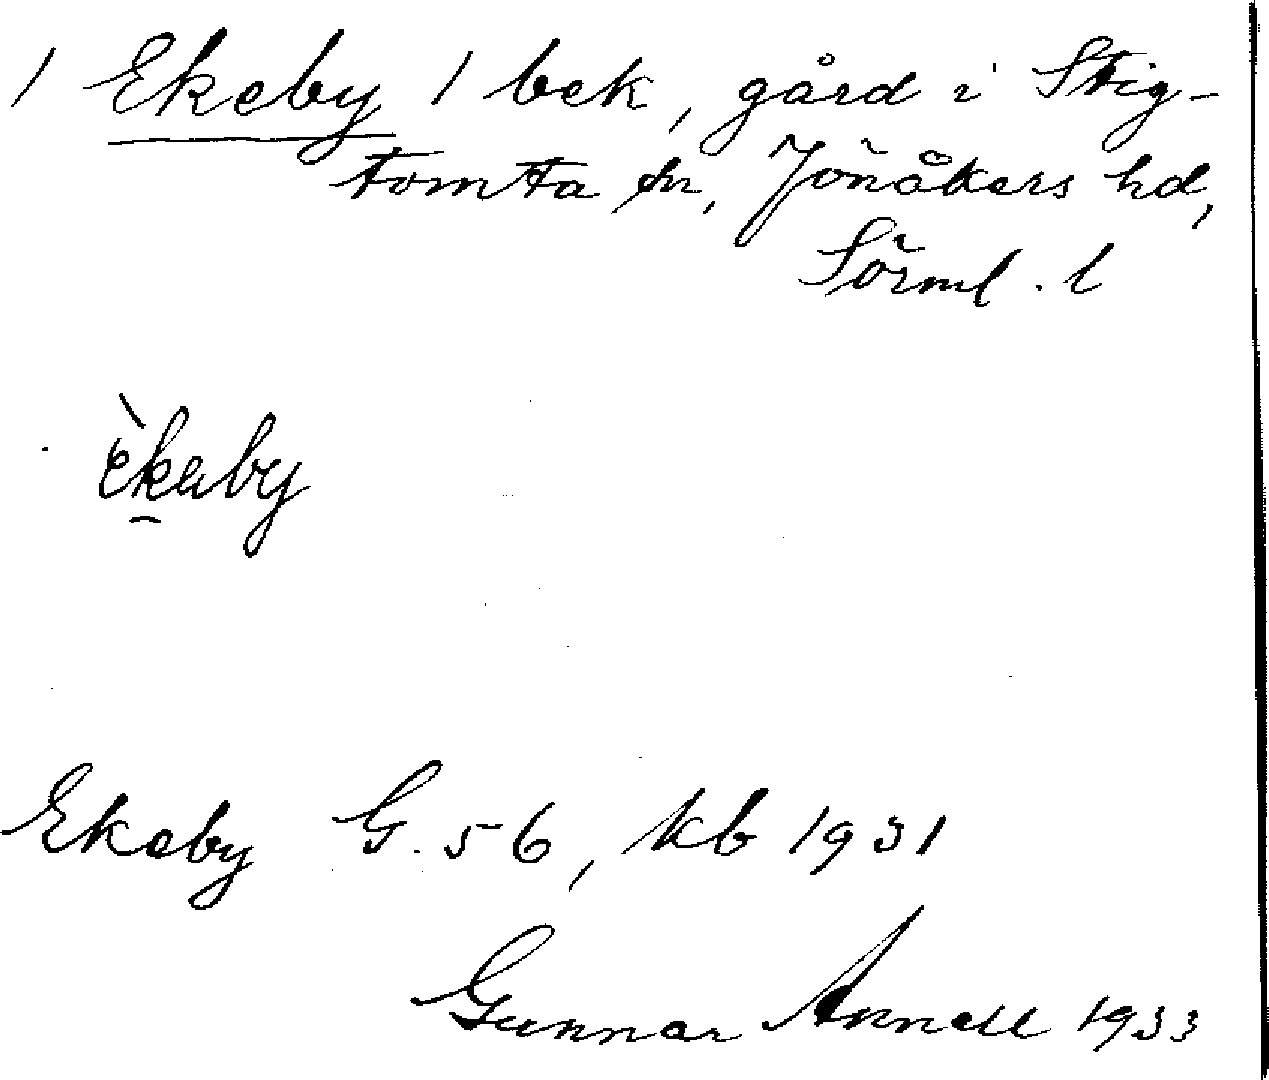 1 Ekeby 1 bek, gård i Stig-
tomta sn, Jönåkers hd,
Sörml. l
èkaby
Ekeby G. 56, kb 1931
Gunnar Annell 1933